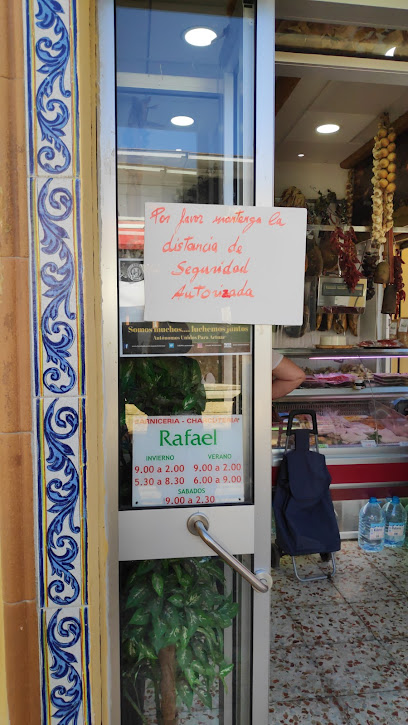 Por favor mantenga la
distancia de
Seguridad
Autorizada
Somos muchos.... luchemos juntos
Autónomos Unidos Para Actuar
CARNICERIA - CHARCUTERIA
Rafael
INVIERNO VERANO
9.00 a 2.00 9.00 a 2.00
5.30 a 8.30 6.00 a 9.00
SABADOS
9.00 a 2.30